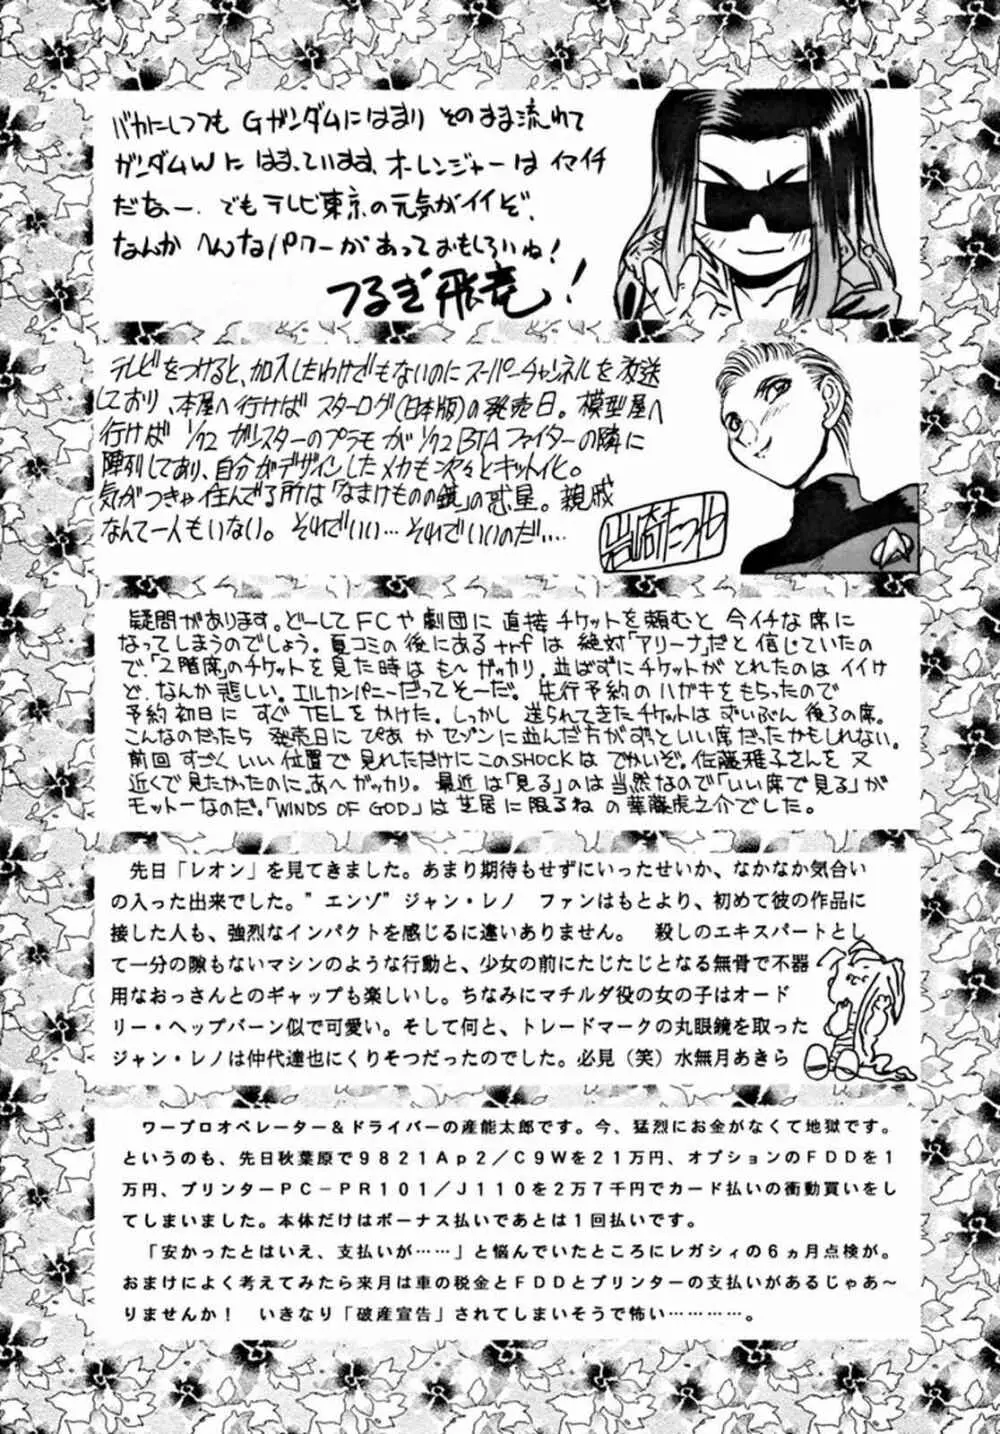 バカにしつつも Gガンダムにはまり そのまま流れて
ガンダムWに はまっています、オーレンジャーは イマイチ
だなー. でもテレビ東京の元気がイイぞ、
なんか へんなパワーがあっておもしろいね!
つるぎ飛竜!
テレビをつけると、加入したわけでもないのにスーパーチャンネルを放送
しており、本屋へ行けば スターログ(日本版)の発売日。模型屋へ
行けば 1/72 ガンスターのプラモが 1/72 BTAファイターの隣に
陣列しており、自分がデザインしたメカも次々とキット化。
気がつきゃ住んでる所は「なまけものの鏡」の惑星。親戚
なんて一人もいない。それでいい…それでいいのだ….
岩崎たつや
疑問があります。どーしてFCや劇団に直接チケットを頼むと 今イチな席に
なってしまうのでしょう。夏コミの後にあるtrfは 絶対「アリーナ」だと信じていたの
で、「2階席」のチケットを見た時は も〜ガッカリ。並ばずにチケットがとれたのは イイけ
ど、なんか悲しい。エルカンパニーだってそーだ。先行予約のハガキをもらったので
予約初日に すぐTELをかけた。しかし送られてきたチケットは ずいぶん後ろの席。
こんなのだったら 発売日に ぴあかセゾンに並んだ方がずっといい席だったかもしれない。
前回すごくいい位置で見れただけにこのSHOCKは でかいぞ。佐藤雅子さんを又
近くで見たかったのに。あ〜ガッカリ。最近は「見る」のは当然なので「いい席で見る」が
モットーなのだ。「WINDS OF GOD」は芝居に限るねの華藤虎之介でした。
先日「レオン」を見てきました。あまり期待もせずにいったせいか、なかなか気合い
の入った出来でした。”エンゾ”ジャン・レノ　ファンはもとより、初めて彼の作品に
接した人も、強烈なインパクトを感じるに違いありません。　殺しのエキスパートとし
て一分の隙もないマシンのような行動と、少女の前にたじたじとなる無骨で不器
用なおっさんとのギャップも楽しいし。ちなみにマチルダ役の女の子はオード
リー・ヘップバーン似で可愛い。そして何と、トレードマークの丸眼鏡を取った
ジャン・レノは仲代達也にくりそつだったのでした。必見（笑）水無月あきら
ワープロオペレーター＆ドライバーの産能太郎です。今、猛烈にお金がなくて地獄です。
というのも、先日秋葉原で９８２１Ａｐ２／Ｃ９Ｗを２１万円、オプションのＦＤＤを１
万円、プリンターＰＣ－ＰＲ１０１／Ｊ１１０を２万７千円でカード払いの衝動買いをし
てしまいました。本体だけはボーナス払いであとは１回払いです。
「安かったとはいえ、支払いが……」と悩んでいたところにレガシィの６ヵ月点検が。
おまけによく考えてみたら来月は車の税金とＦＤＤとプリンターの支払いがあるじゃあ〜
りませんか！　いきなり「破産宣告」されてしまいそうで怖い…………。